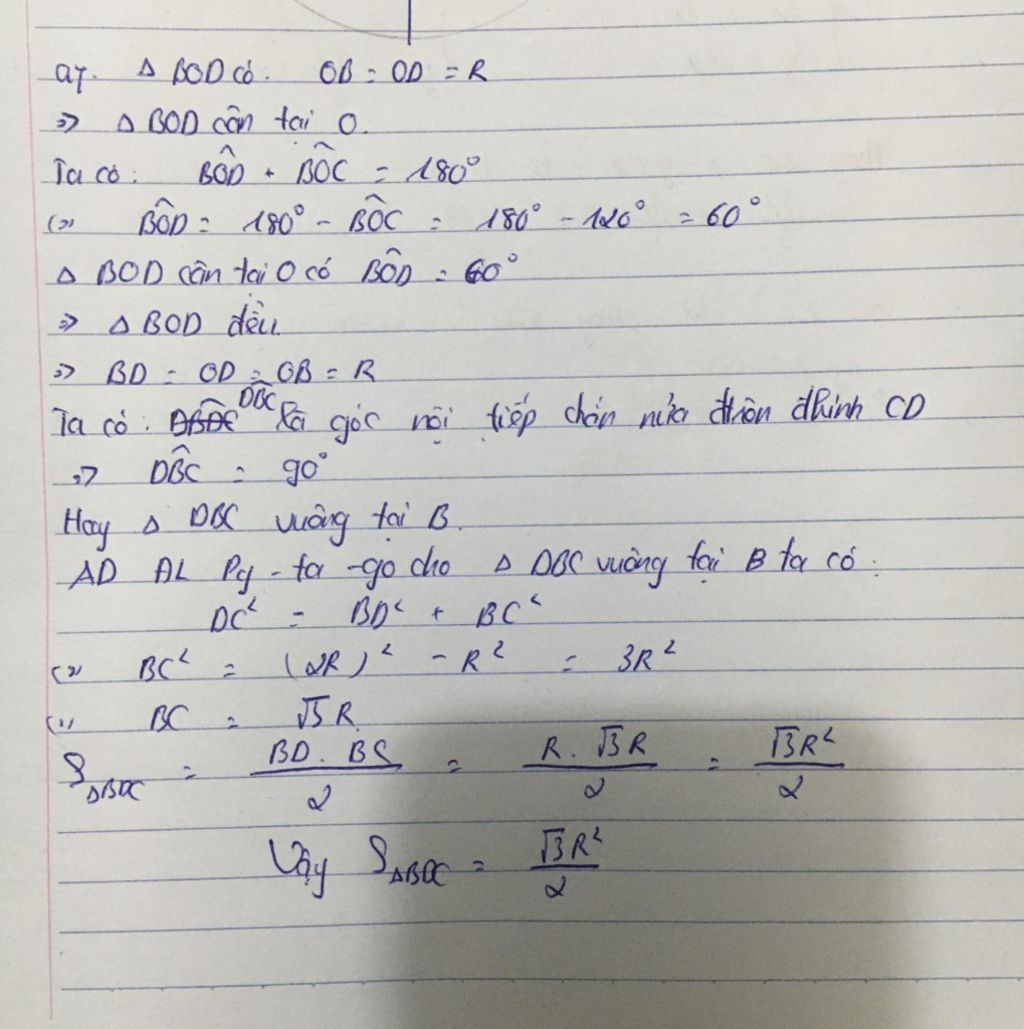 a7. Δ BOD có: OB = OD = R
=> Δ BOD cân tại O.
Ta có: BÔD + BÔC = 180°
(=) BÔD = 180° - BÔC = 180° - 120° = 60°
Δ BOD cân tại O có BÔD = 60°
=> Δ BOD đều
=> BD = OD = OB = R
Ta có: DB̂C là góc nội tiếp chắn nửa đtròn đkính CD
=> DB̂C = 90°
Hay Δ DBC vuông tại B.
AD ĐL Py-ta-go cho Δ DBC vuông tại B ta có:
DC² = BD² + BC²
(=) BC² = (2R)² - R² = 3R²
(=) BC = √3 R
S ΔBDC = BD. BC / 2 = R. √3 R / 2 = √3 R² / 2
Vậy S ΔBDC = √3 R² / 2